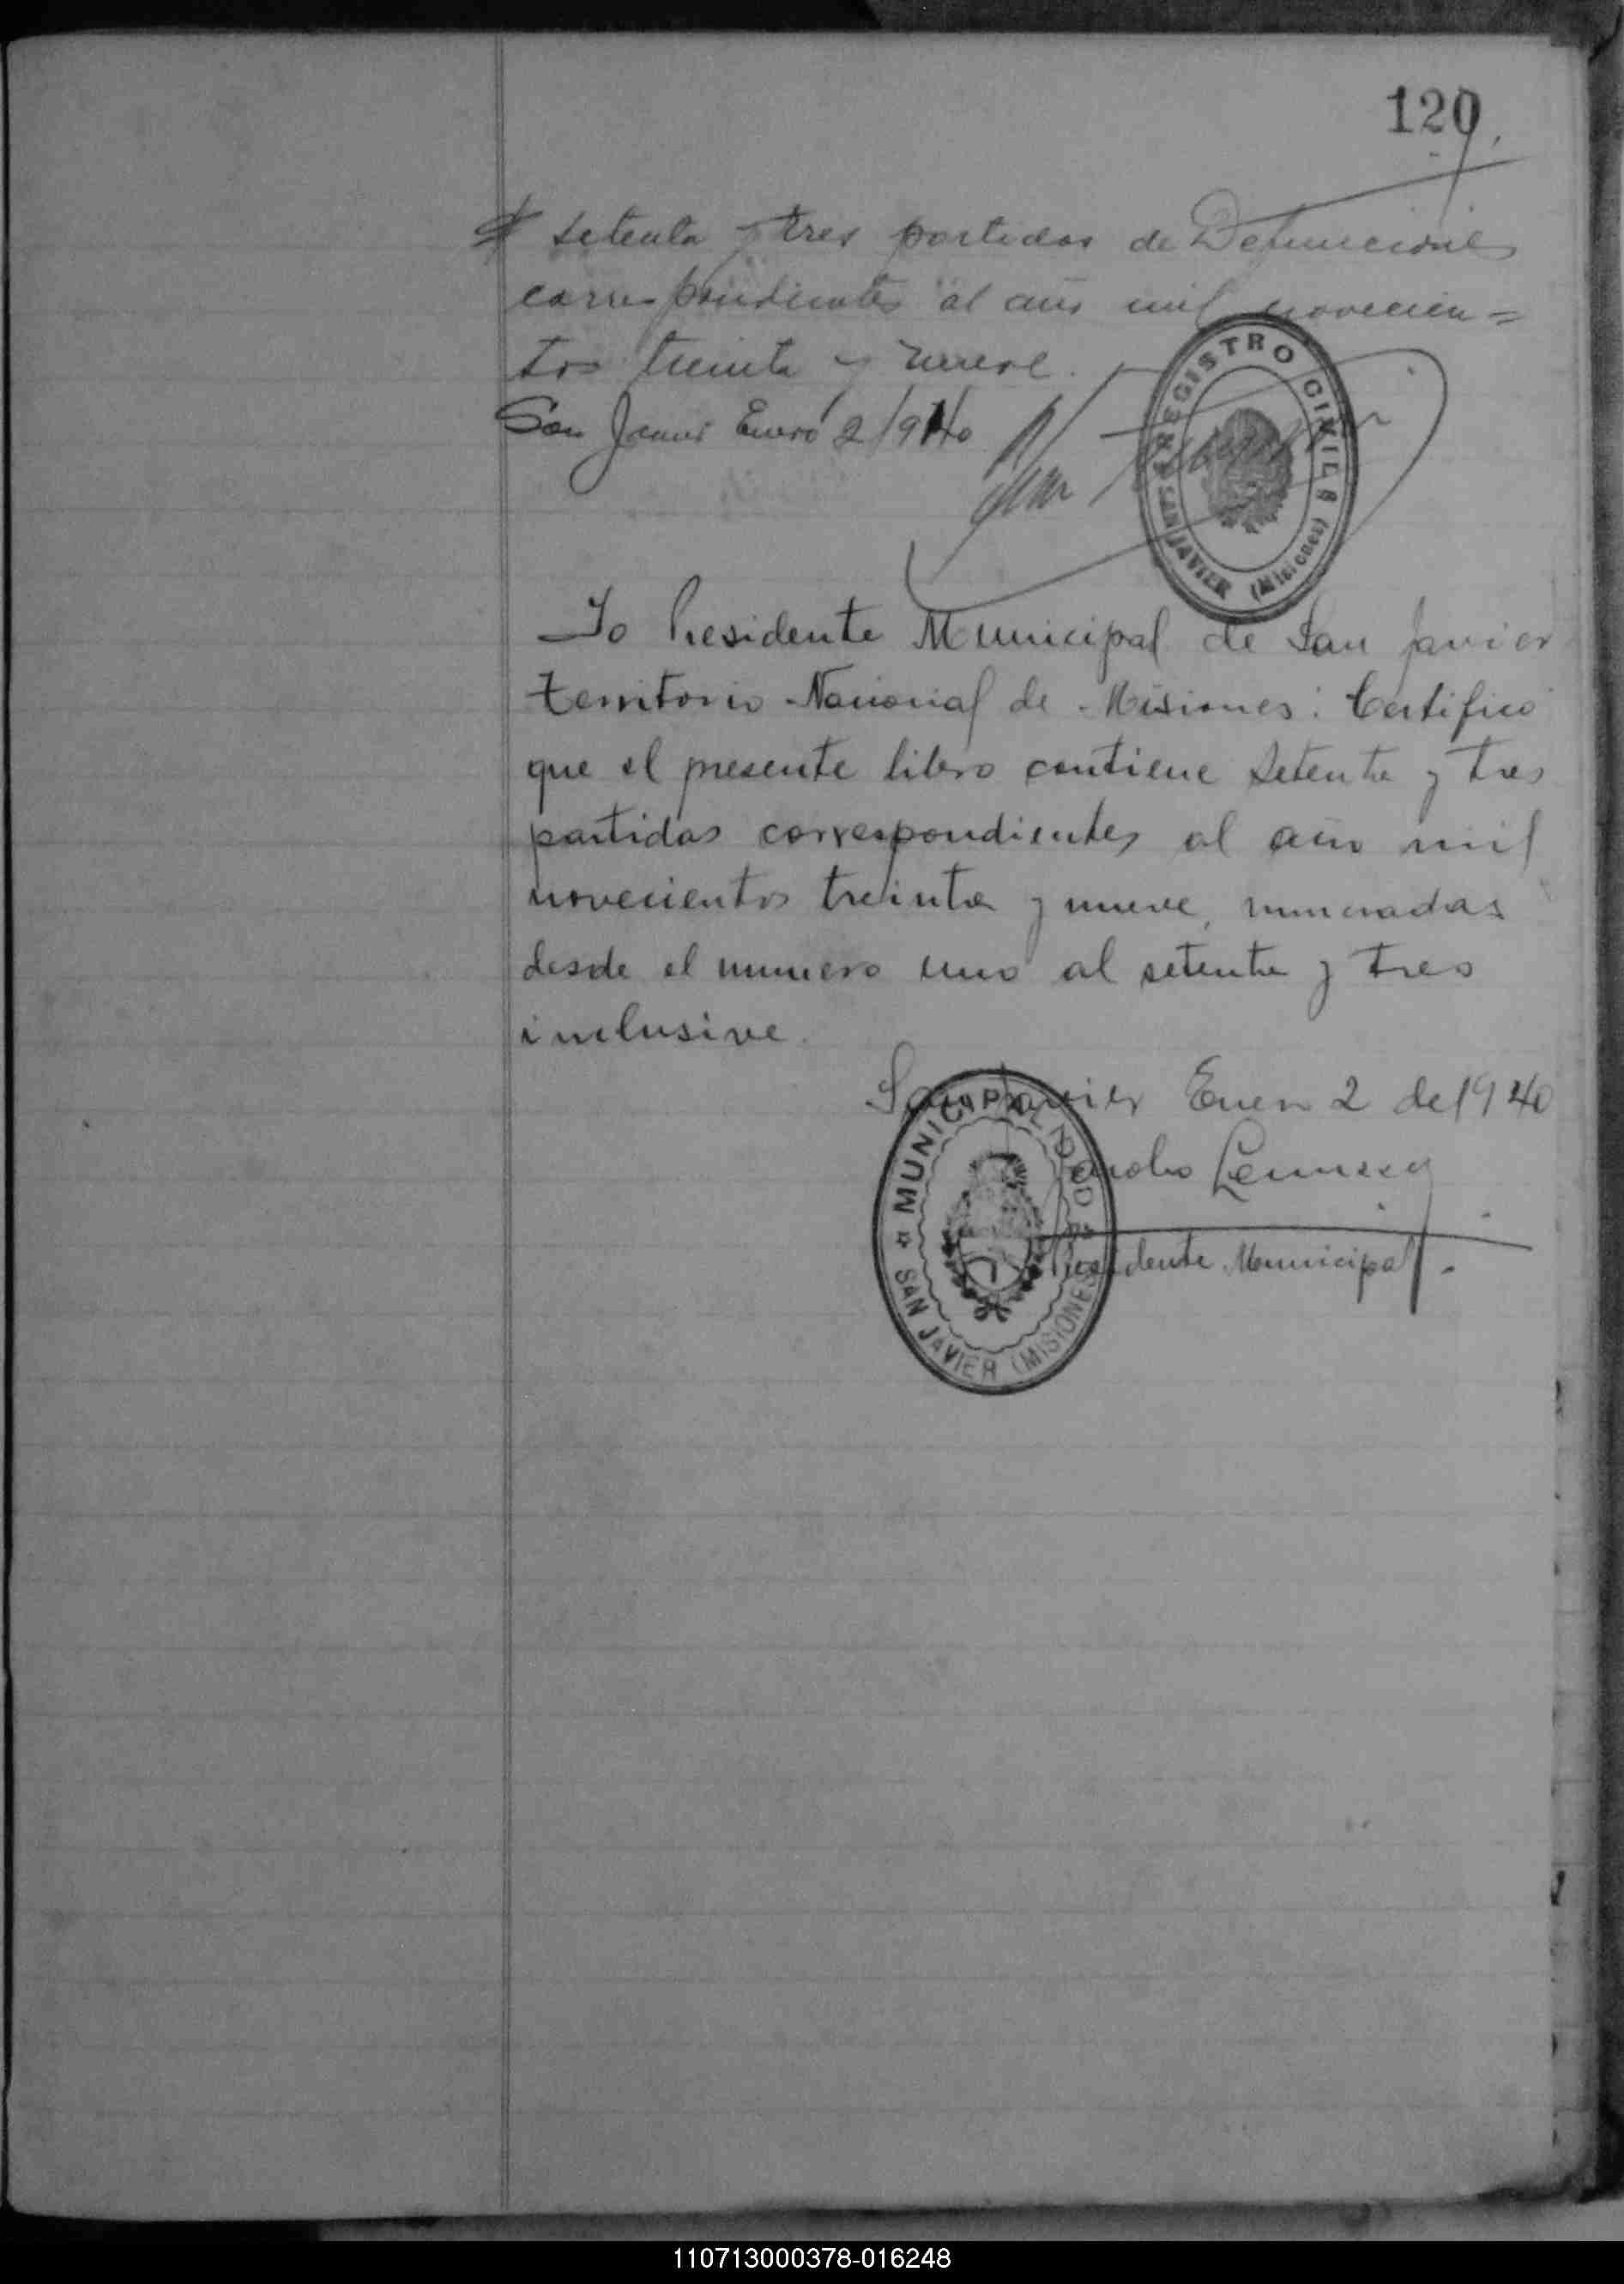 120
setenta y tres partidas de Defunciones
correspondientes al año mil novecien=
tos treinta y nueve.
San Javier Enero 2/940
REGISTRO CIVIL
SAN JAVIER (Misiones)
Yo Presidente Municipal de San Javier
territorio Nacional de Misiones: Certifico
que el presente libro contiene setenta y tres
partidas correspondientes al año mil
novecientos treinta y nueve, numeradas
desde el numero uno al setenta y tres
inclusive.
San Javier Enero 2 de 1940
MUNICIPALIDAD
SAN JAVIER (MISIONES)
Presidente Municipal.
110713000378-016248